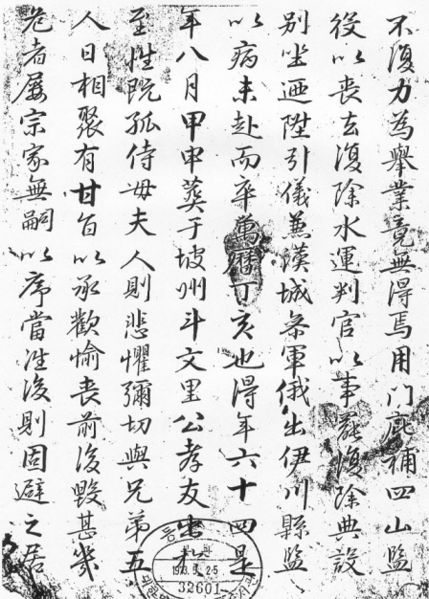 不復力為擧業竟無得焉用門庇補四山監
役以喪去復除水運判官以事罷復除典設
別坐迺陞引儀兼漢城叅軍俄出伊川縣監
以病未赴而卒萬曆丁亥也得年六十四是
年八月甲申葬于坡州斗文里公孝友出
至性旣孤侍母夫人則悲懼彌切與兄弟五
人日相聚有甘旨以承歡愉喪前後毀甚幾
危者屢宗家無嗣以序當淮後則固避之居
32601